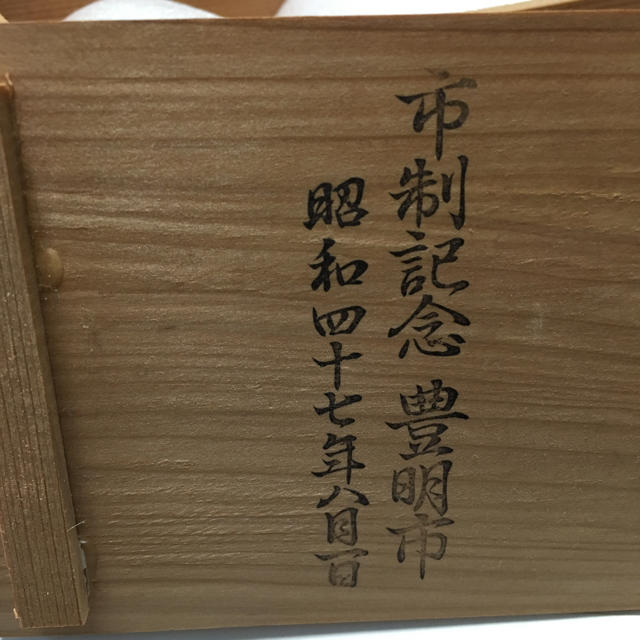 市制記念 豊明市
昭和四十七年八月一日